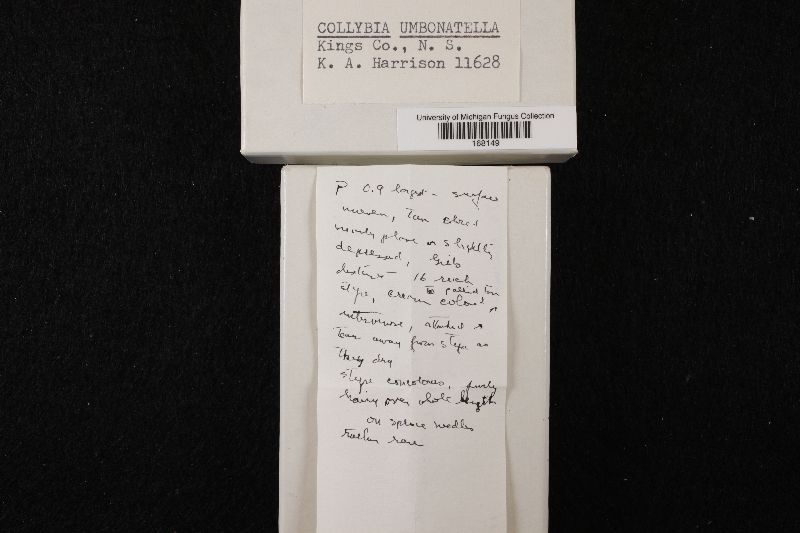 COLLYBIA UMBONATELLA
Kings Co., N. S.
K. A. Harrison 11628
University of Michigan Fungus Collection
168149
P 0.9 largest - surface
uneven, Tan
nearly plane or slightly
depressed, Gills
distinct 16 reach
to pallid tan
stipe, cream colored
intervenose, attached
Tear away from stipe as
They dry
stipe concolorous, finely
hairy over whole length
on spruce needles
rather rare